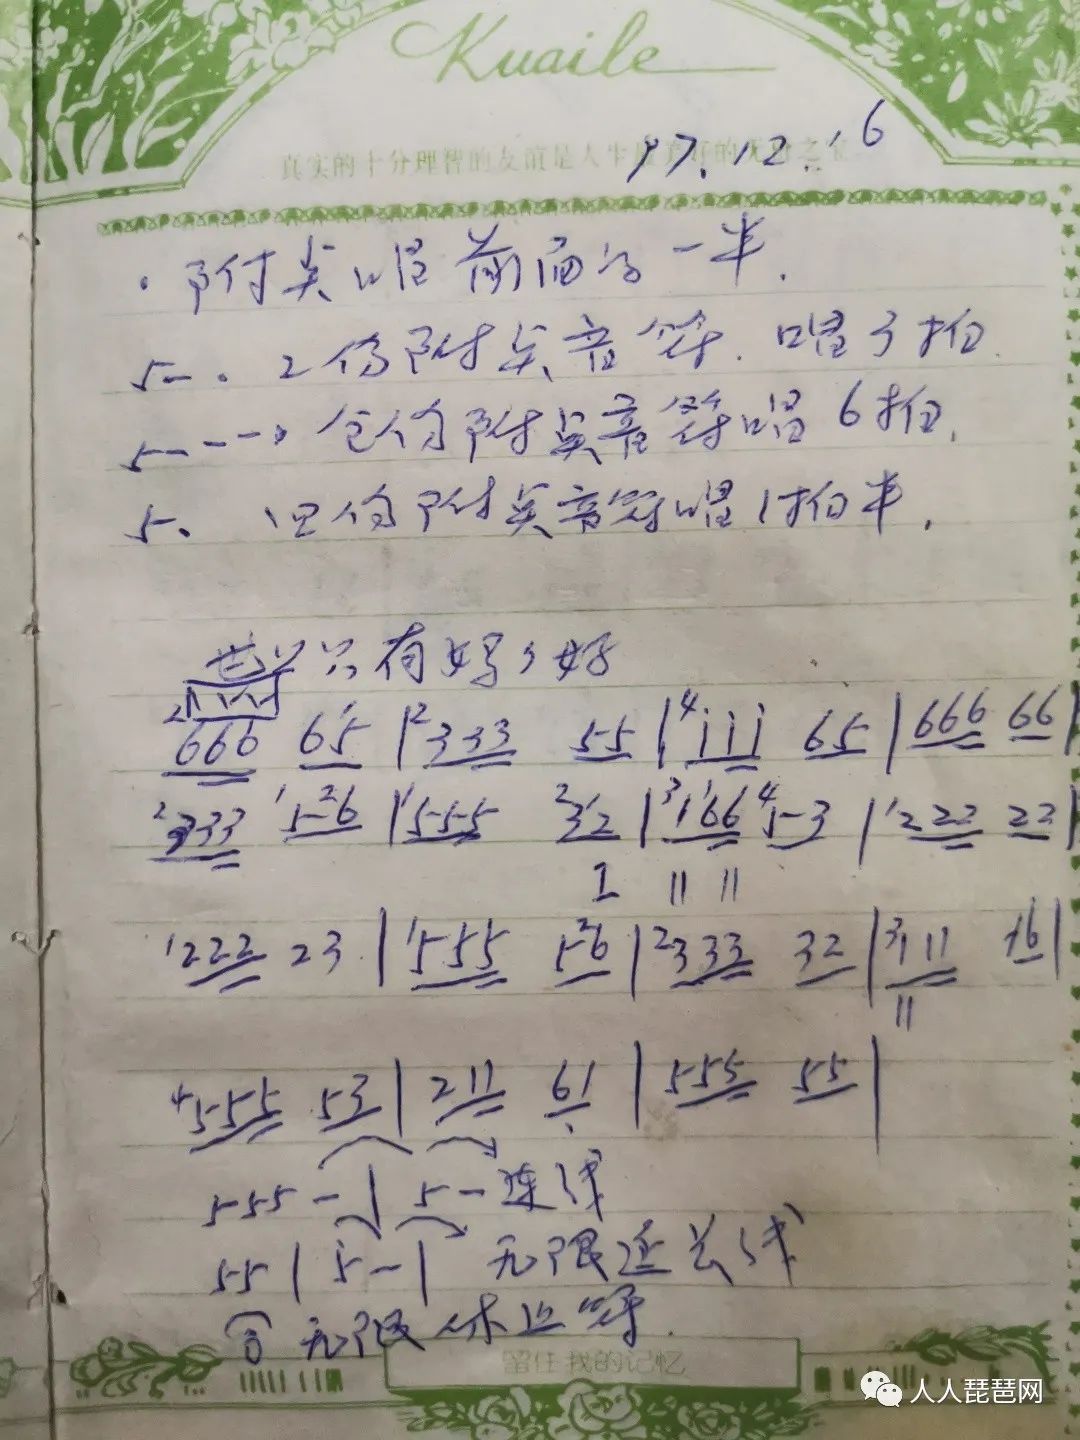 Kuaile
真实的十分理智的友谊是人生最美好的无价之宝
97.12.16
· 附点唱前面的一半.
5-. 2份附点音符.唱3拍.
5---. 全份附点音符唱6拍.
5. 四份附点音符唱1拍半.
世上只有妈妈好
666 65 | 333 55 | iii 65 | 666 66 |
333 56 | 555 32 | 166 53 | 222 22 |
222 23 | 555 56 | 333 32 | 111 16 |
555 53 | 211 61 | 555 55 |
555 - | 5 - 连线
55 | 5 - | 无限延长线
无限休止符.
留住我的记忆
人人琵琶网